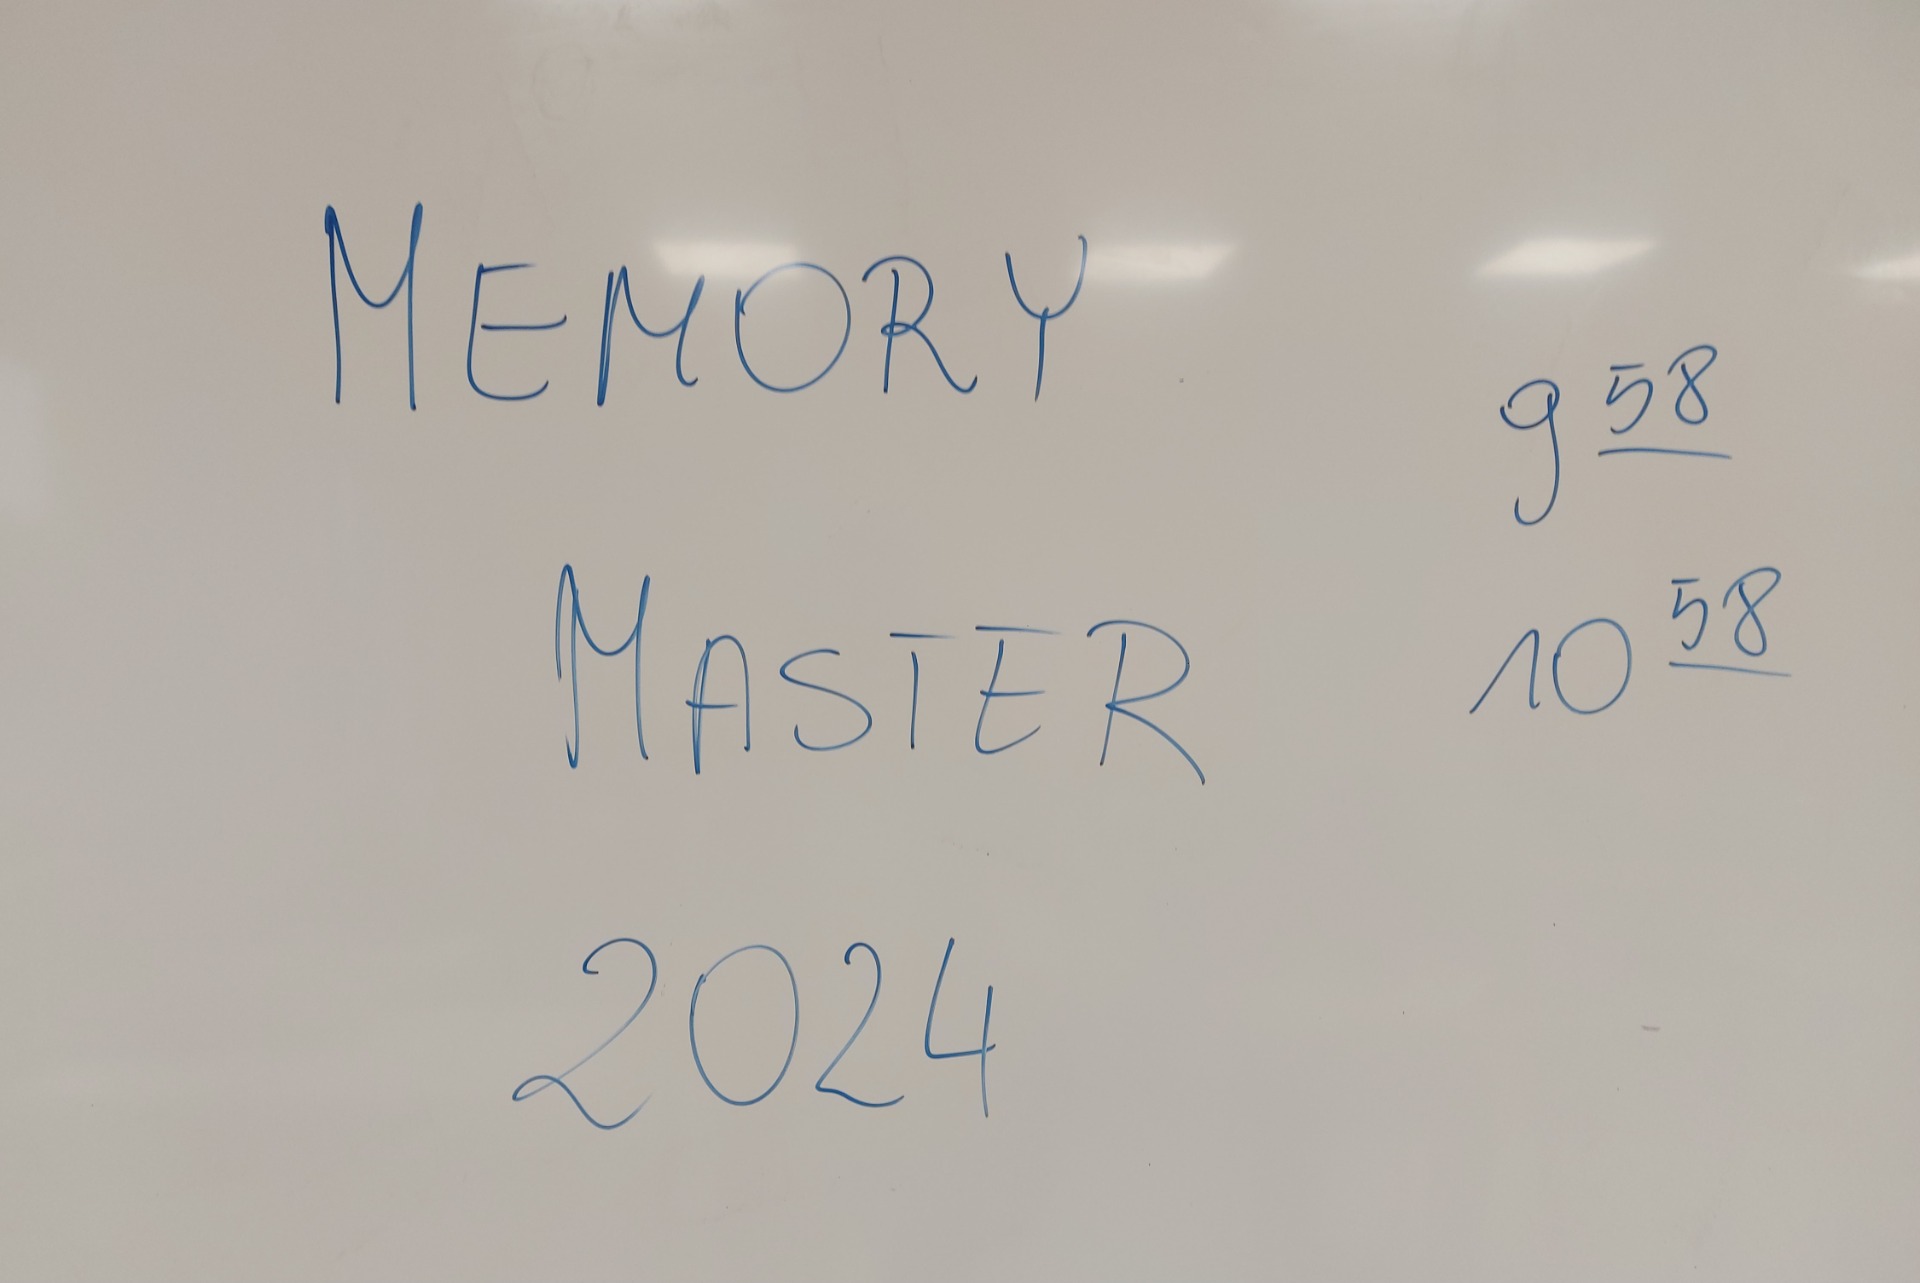 MEMORY
MASTER
2024
9 58
10 58